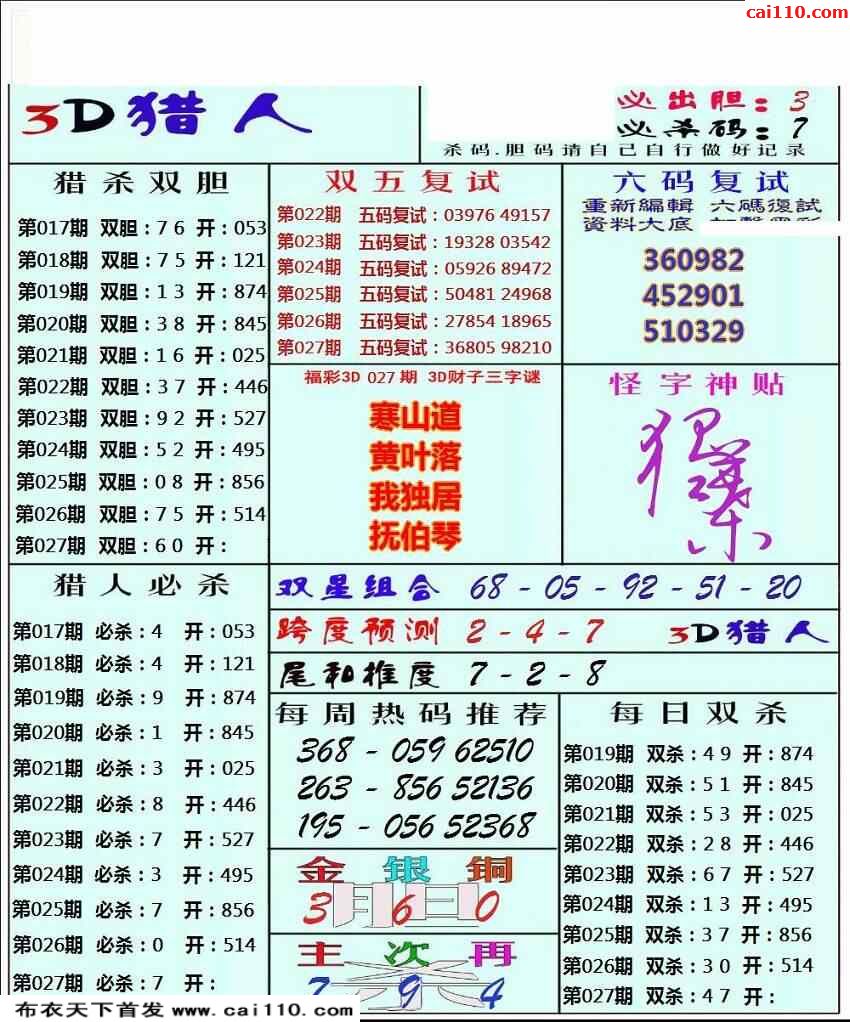 cai110.com
3D猎人
必出胆：3
必杀码：7
杀码.胆码请自己自行做好记录
猎杀双胆
第017期 双胆：76 开：053
第018期 双胆：75 开：121
第019期 双胆：13 开：874
第020期 双胆：38 开：845
第021期 双胆：16 开：025
第022期 双胆：37 开：446
第023期 双胆：92 开：527
第024期 双胆：52 开：495
第025期 双胆：08 开：856
第026期 双胆：75 开：514
第027期 双胆：60 开：
双五复试
第022期 五码复试：03976 49157
第023期 五码复试：19328 03542
第024期 五码复试：05926 89472
第025期 五码复试：50481 24968
第026期 五码复试：27854 18965
第027期 五码复试：36805 98210
六码复试
重新編輯 六碼復試
資料大底
360982
452901
510329
福彩3D 027期 3D财子三字谜
寒山道
黄叶落
我独居
抚伯琴
怪字神贴
猎人必杀
第017期 必杀：4 开：053
第018期 必杀：4 开：121
第019期 必杀：9 开：874
第020期 必杀：1 开：845
第021期 必杀：3 开：025
第022期 必杀：8 开：446
第023期 必杀：7 开：527
第024期 必杀：3 开：495
第025期 必杀：7 开：856
第026期 必杀：0 开：514
第027期 必杀：7 开：
双星组合 68-05-92-51-20
跨度预测 2-4-7 3D猎人
尾和推度 7-2-8
每周热码推荐
368-059 62510
263-856 52136
195-056 52368
金银铜
3 6 0
主次再
7 9 4
每日双杀
第019期 双杀：49 开：874
第020期 双杀：51 开：845
第021期 双杀：53 开：025
第022期 双杀：28 开：446
第023期 双杀：67 开：527
第024期 双杀：13 开：495
第025期 双杀：37 开：856
第026期 双杀：30 开：514
第027期 双杀：47 开：
布衣天下首发 www.cai110.com